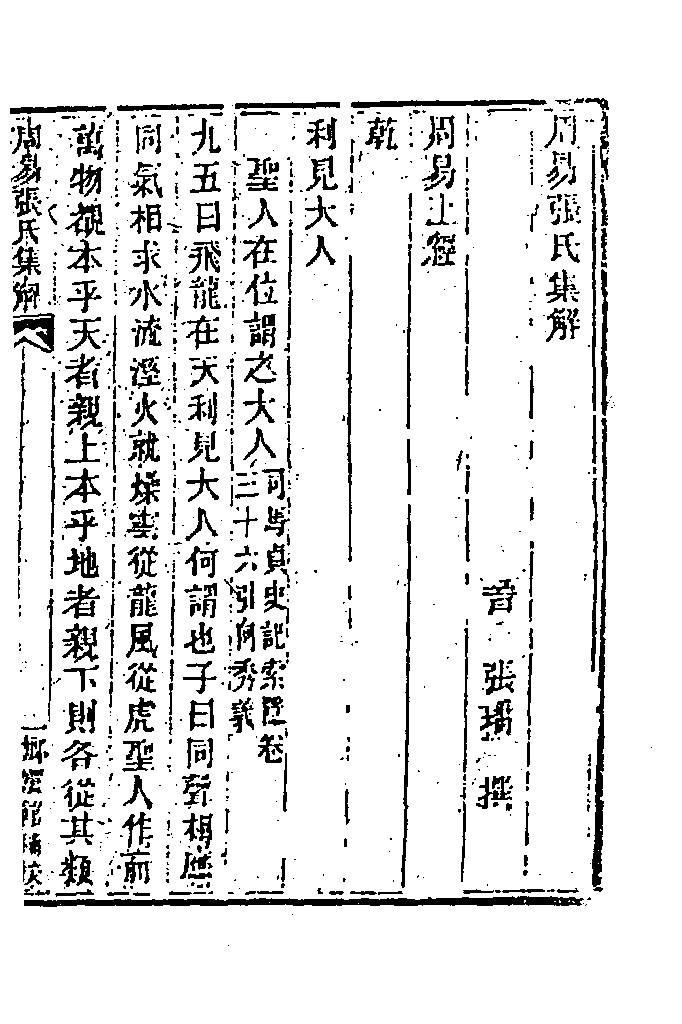 周易張氏集解
晉 張璠 撰
周易上經
乾
利見大人
聖人在位謂之大人司馬貞史記索隱卷三十六引向秀義
九五曰飛龍在天利見大人何謂也子曰同聲相應
同氣相求水流溼火就燥雲從龍風從虎聖人作而
萬物覩本乎天者親上本乎地者親下則各從其類
周易張氏集解
一 嫏嬛館補校